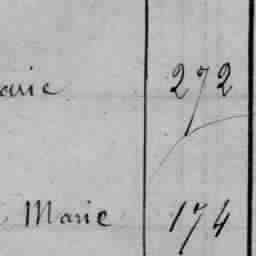 arie 272
Marie 174